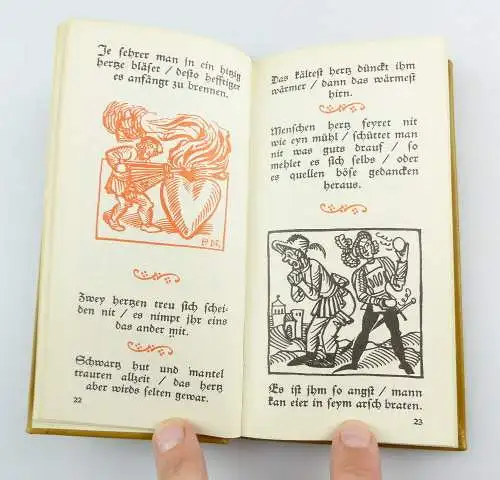 Je sehrer man in ein hitzig
hertze bläset / desto hefftiger
es anfängt zu brennen.
Zwey hertzen treu sich schei-
den nit / es nimpt jhr eins
das ander mit.
Schwartz hut und mantel
trauren allzeit / das hertz
aber wirds selten gewar.
22
Das kältest hertz dünckt ihm
wärmer / dann das wärmest
hirn.
Menschen hertz feyret nit
wie eyn mühl / schüttet man
nit was guts drauf / so
mehlet es sich selbs / oder
es quellen böse gedancken
heraus.
Es ist jhm so angst / mann
kan eier in seym arsch braten.
23